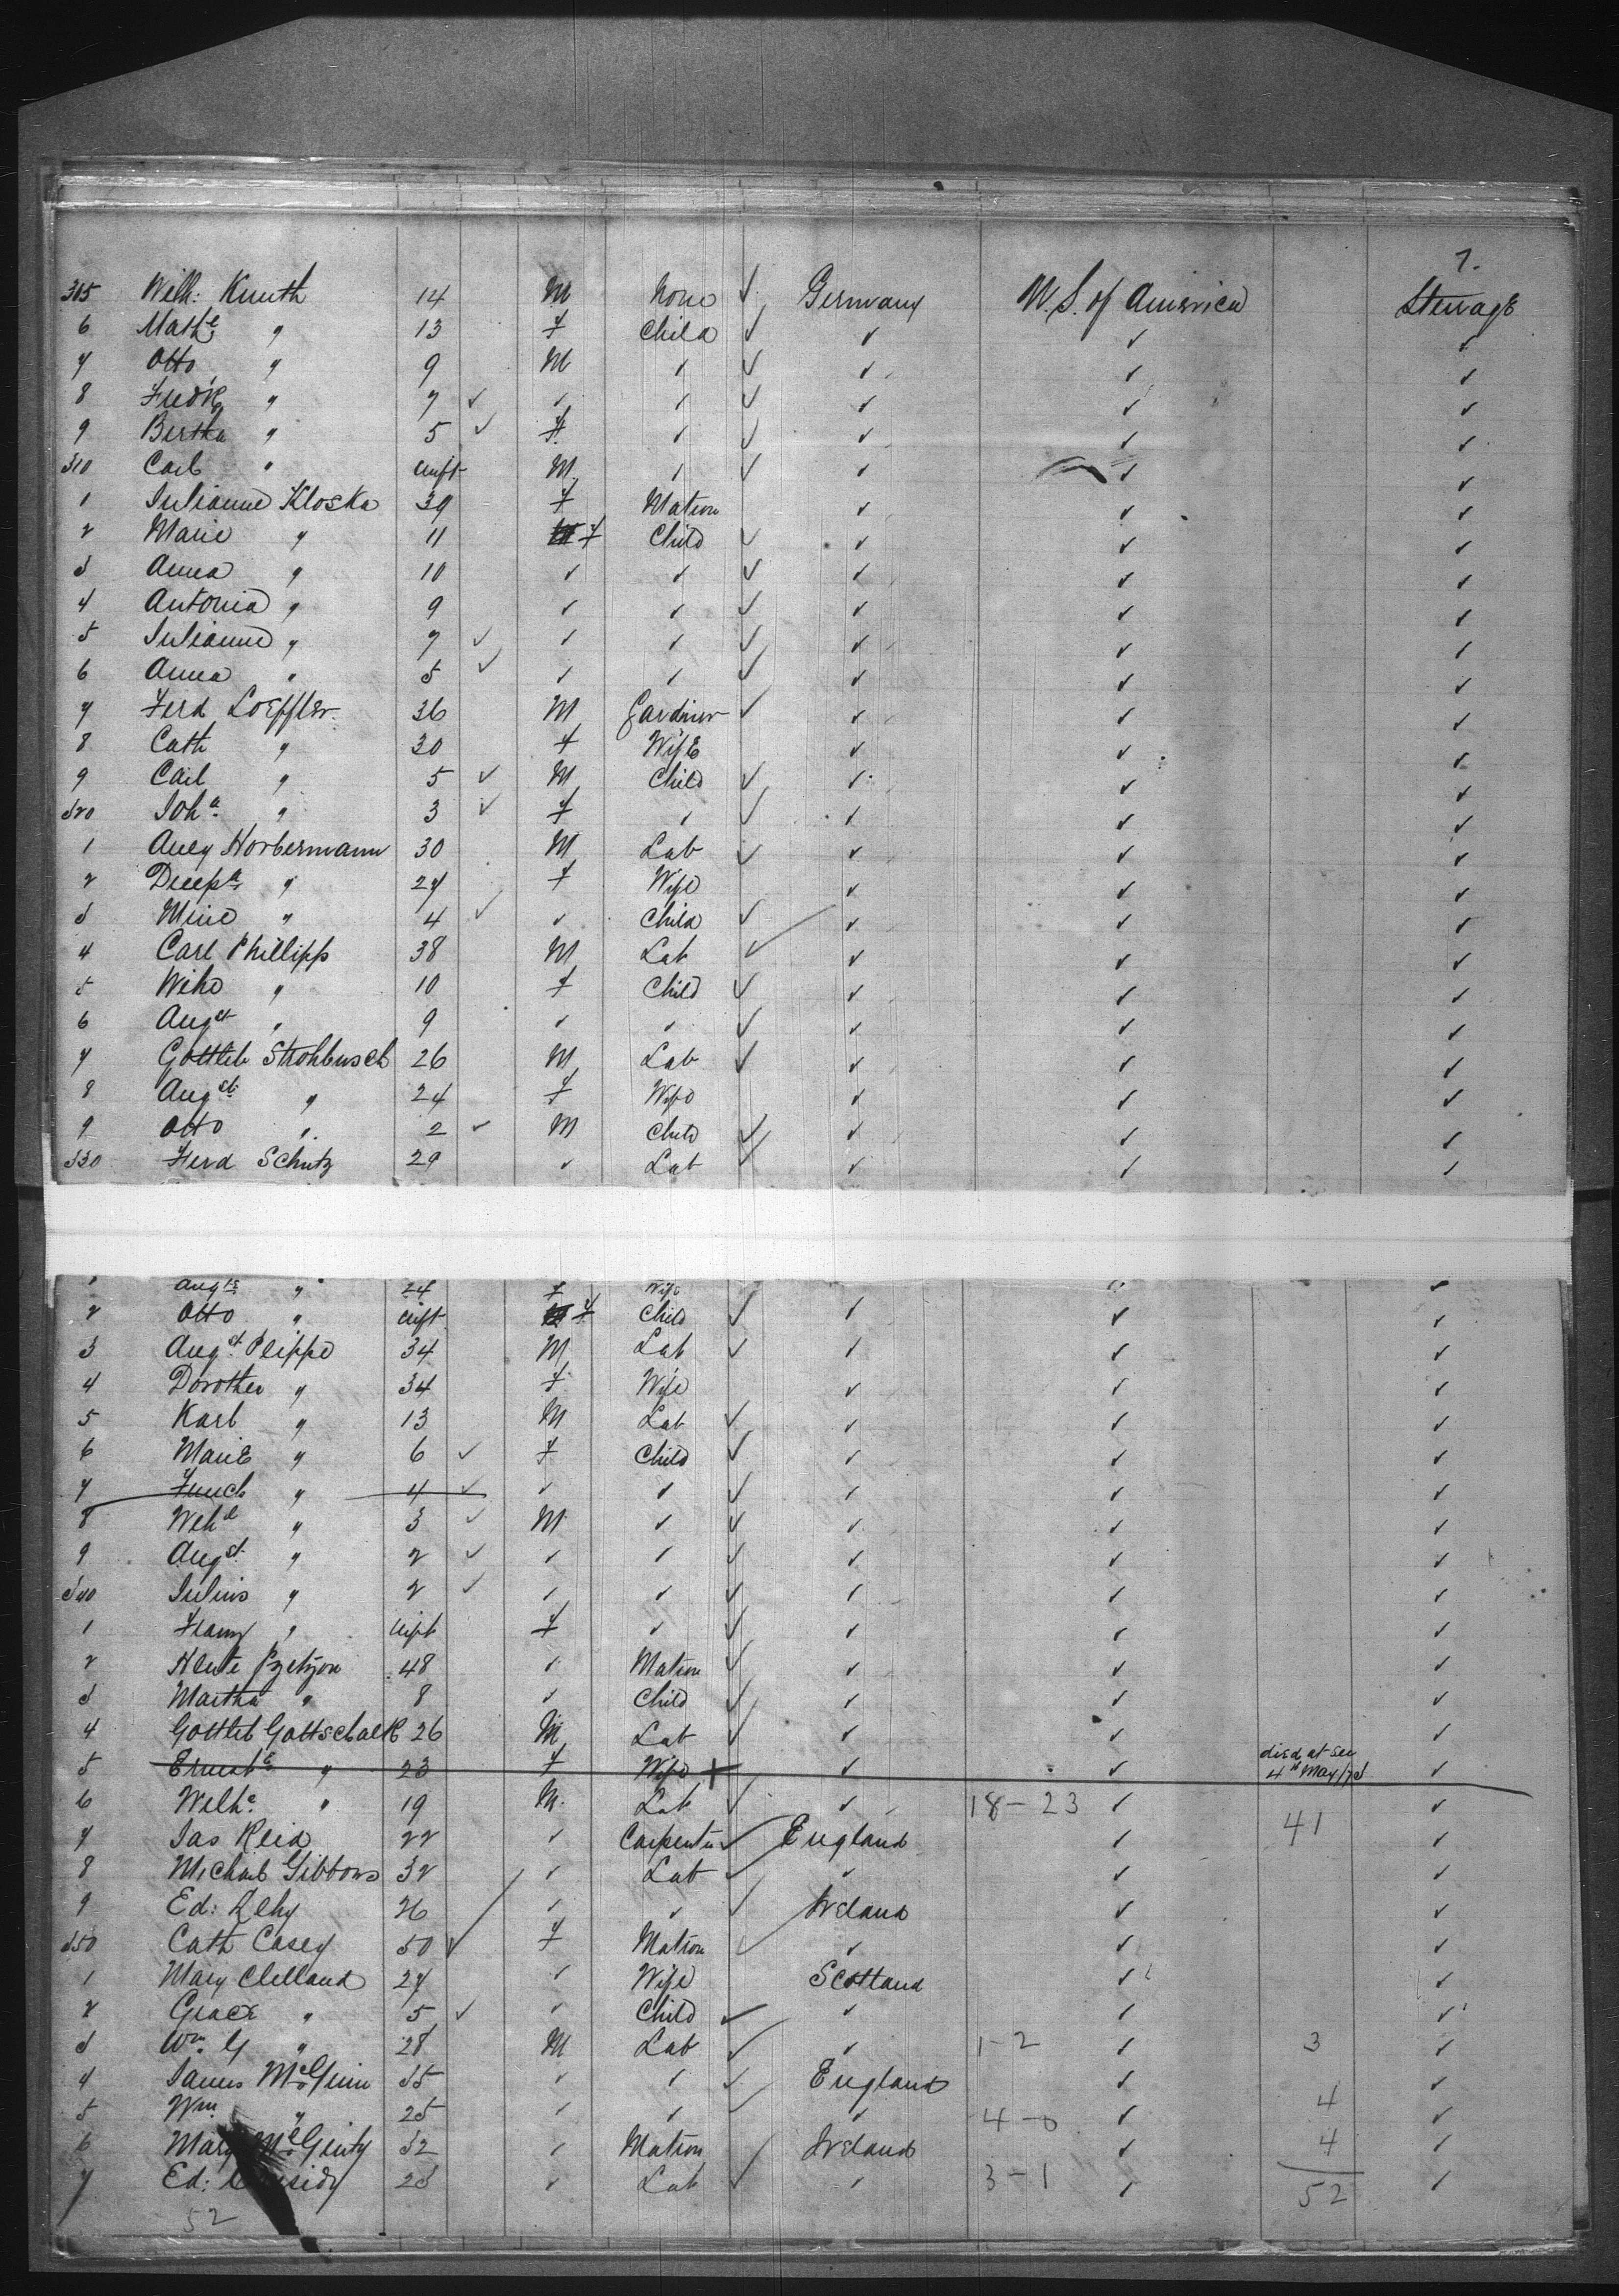 7.
305 Wilh: Knuth 14 M None ✓ Germany U.S. of America Steerage
6 Math e " 13 f Child ✓ ✓ ✓ ✓
7 Otto " 9 M ✓ ✓ ✓ ✓ ✓
8 Fredk " 7 ✓ ✓ ✓ ✓ ✓ ✓ ✓
9 Bertha " 5 ✓ f ✓ ✓ ✓ ✓ ✓
310 Carl " inft M ✓ ✓ ✓ ✓ ✓
1 Julianne Kloska 39 f Matron ✓ ✓ ✓
2 Marie " 11 f Child ✓ ✓ ✓ ✓
3 Anna " 10 ✓ ✓ ✓ ✓ ✓ ✓
4 Antonia " 9 ✓ ✓ ✓ ✓ ✓ ✓
5 Julianne " 7 ✓ ✓ ✓ ✓ ✓ ✓ ✓
6 Anna " 5 ✓ ✓ ✓ ✓ ✓ ✓ ✓
7 Ferd Loeffler 36 M Gardiner ✓ ✓ ✓ ✓
8 Cath " 30 f Wife ✓ ✓ ✓
9 Carl " 5 ✓ M Child ✓ ✓ ✓ ✓
320 Joh a " 3 ✓ f ✓ ✓ ✓ ✓ ✓
1 Horbermann 30 M Lab ✓ ✓ ✓ ✓
2 " 27 f Wife ✓ ✓ ✓
3 Mine " 4 ✓ ✓ Child ✓ ✓ ✓ ✓
4 Carl Phillipp 38 M Lab ✓ ✓ ✓ ✓
5 " 10 f Child ✓ ✓ ✓ ✓
6 Aug st " 9 ✓ ✓ ✓ ✓ ✓ ✓
7 Gottlieb Strohbusch 26 M Lab ✓ ✓ ✓ ✓
8 Aug st " 24 f Wife ✓ ✓ ✓
9 Otto " 2 ✓ M Child ✓ ✓ ✓ ✓
330 Ferd Schutz 29 ✓ Lab ✓ ✓ ✓ ✓
1 Aug te " 24 f Wife ✓ ✓
2 Otto " inft f Child ✓ ✓ ✓ ✓
3 Aug st Pleippe 34 M Lab ✓ ✓ ✓ ✓
4 Dorothee " 34 f Wife ✓ ✓ ✓
5 Karl " 13 M Lab ✓ ✓ ✓ ✓
6 Marie " 6 ✓ f Child ✓ ✓ ✓ ✓
7 " 4 ✓ ✓ ✓ ✓ ✓ ✓ ✓
8 " 3 ✓ M ✓ ✓ ✓ ✓ ✓
9 Aug st " 2 ✓ ✓ ✓ ✓ ✓ ✓ ✓
340 Julius " 2 ✓ ✓ ✓ ✓ ✓ ✓ ✓
1 " inft f ✓ ✓ ✓ ✓ ✓
2 48 ✓ Matron ✓ ✓ ✓ ✓
3 Martha " 8 ✓ Child ✓ ✓ ✓ ✓
4 Gottlieb Gottschalk 26 M Lab ✓ ✓ ✓ ✓
5 Ernest e " 23 f Wife + ✓ ✓ died at sea 4th May/73 ✓
6 Wilh e " 19 M Lab ✓ ✓ 18-23 ✓ ✓
7 Jas Reid 22 ✓ Carpenter ✓ England ✓ 41 ✓
8 Michael Gibbons 32 ✓ Lab ✓ ✓ ✓ ✓
9 Ed: 26 ✓ ✓ ✓ Ireland ✓ ✓
350 Cath Casey 50 ✓ f Matron ✓ ✓ ✓ ✓
1 Mary Clelland 27 ✓ Wife Scotland ✓ ✓
2 Grace " 5 ✓ ✓ Child ✓ ✓ ✓ ✓
3 Wm G " 28 M Lab ✓ ✓ 1-2 ✓ 3 ✓
4 James McGinn 35 ✓ ✓ ✓ England ✓ ✓
5 Wm " 25 ✓ ✓ ✓ 4-0 ✓ 4 ✓
6 Mary McGinty 32 ✓ Matron ✓ Ireland ✓ 4 ✓
7 Ed: 23 ✓ Lab ✓ ✓ 3-1 ✓ 52 ✓
52